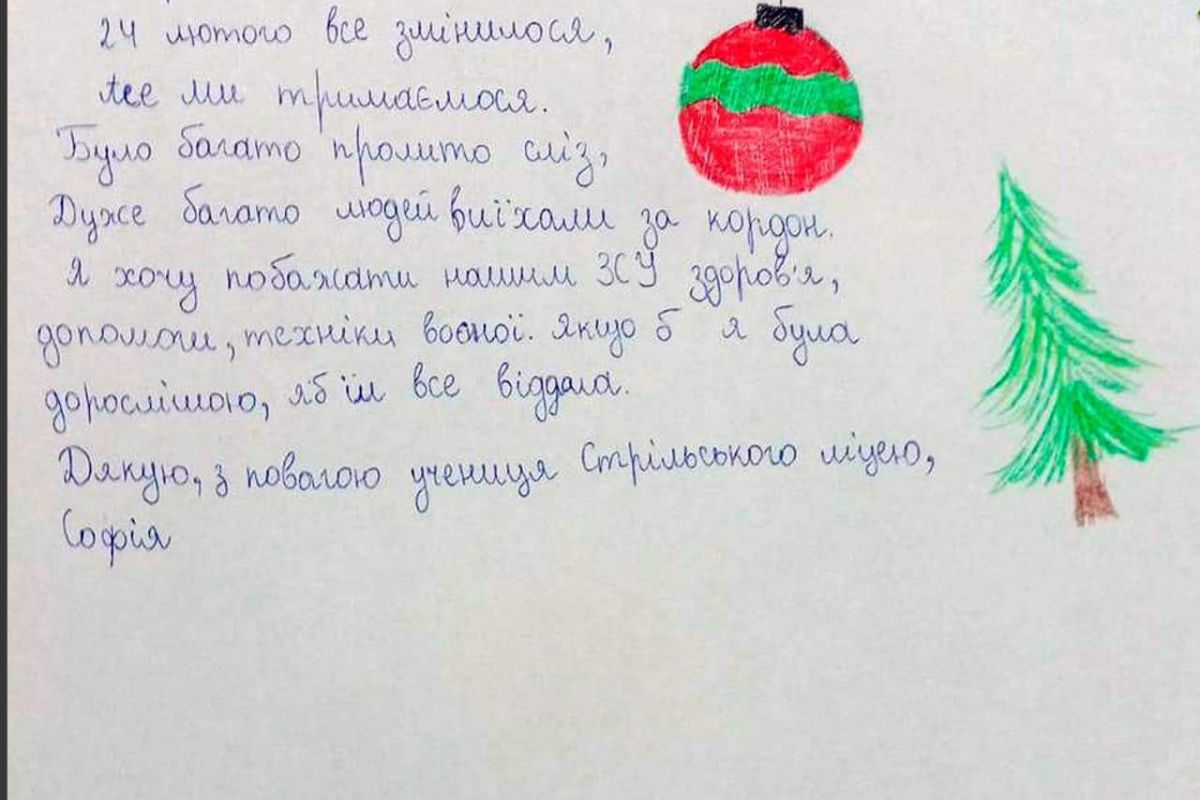 24 лютого все змінилося,
Але ми тримаємося.
Було багато пролито сліз,
Дуже багато людей виїхали за кордон.
Я хочу побажати нашим ЗСУ здоров'я,
допомоги, техніки воєної. Якщо б я була
дорослішою, я б їм все віддала.
Дякую, з повагою учениця Стрільського ліцею,
Софія